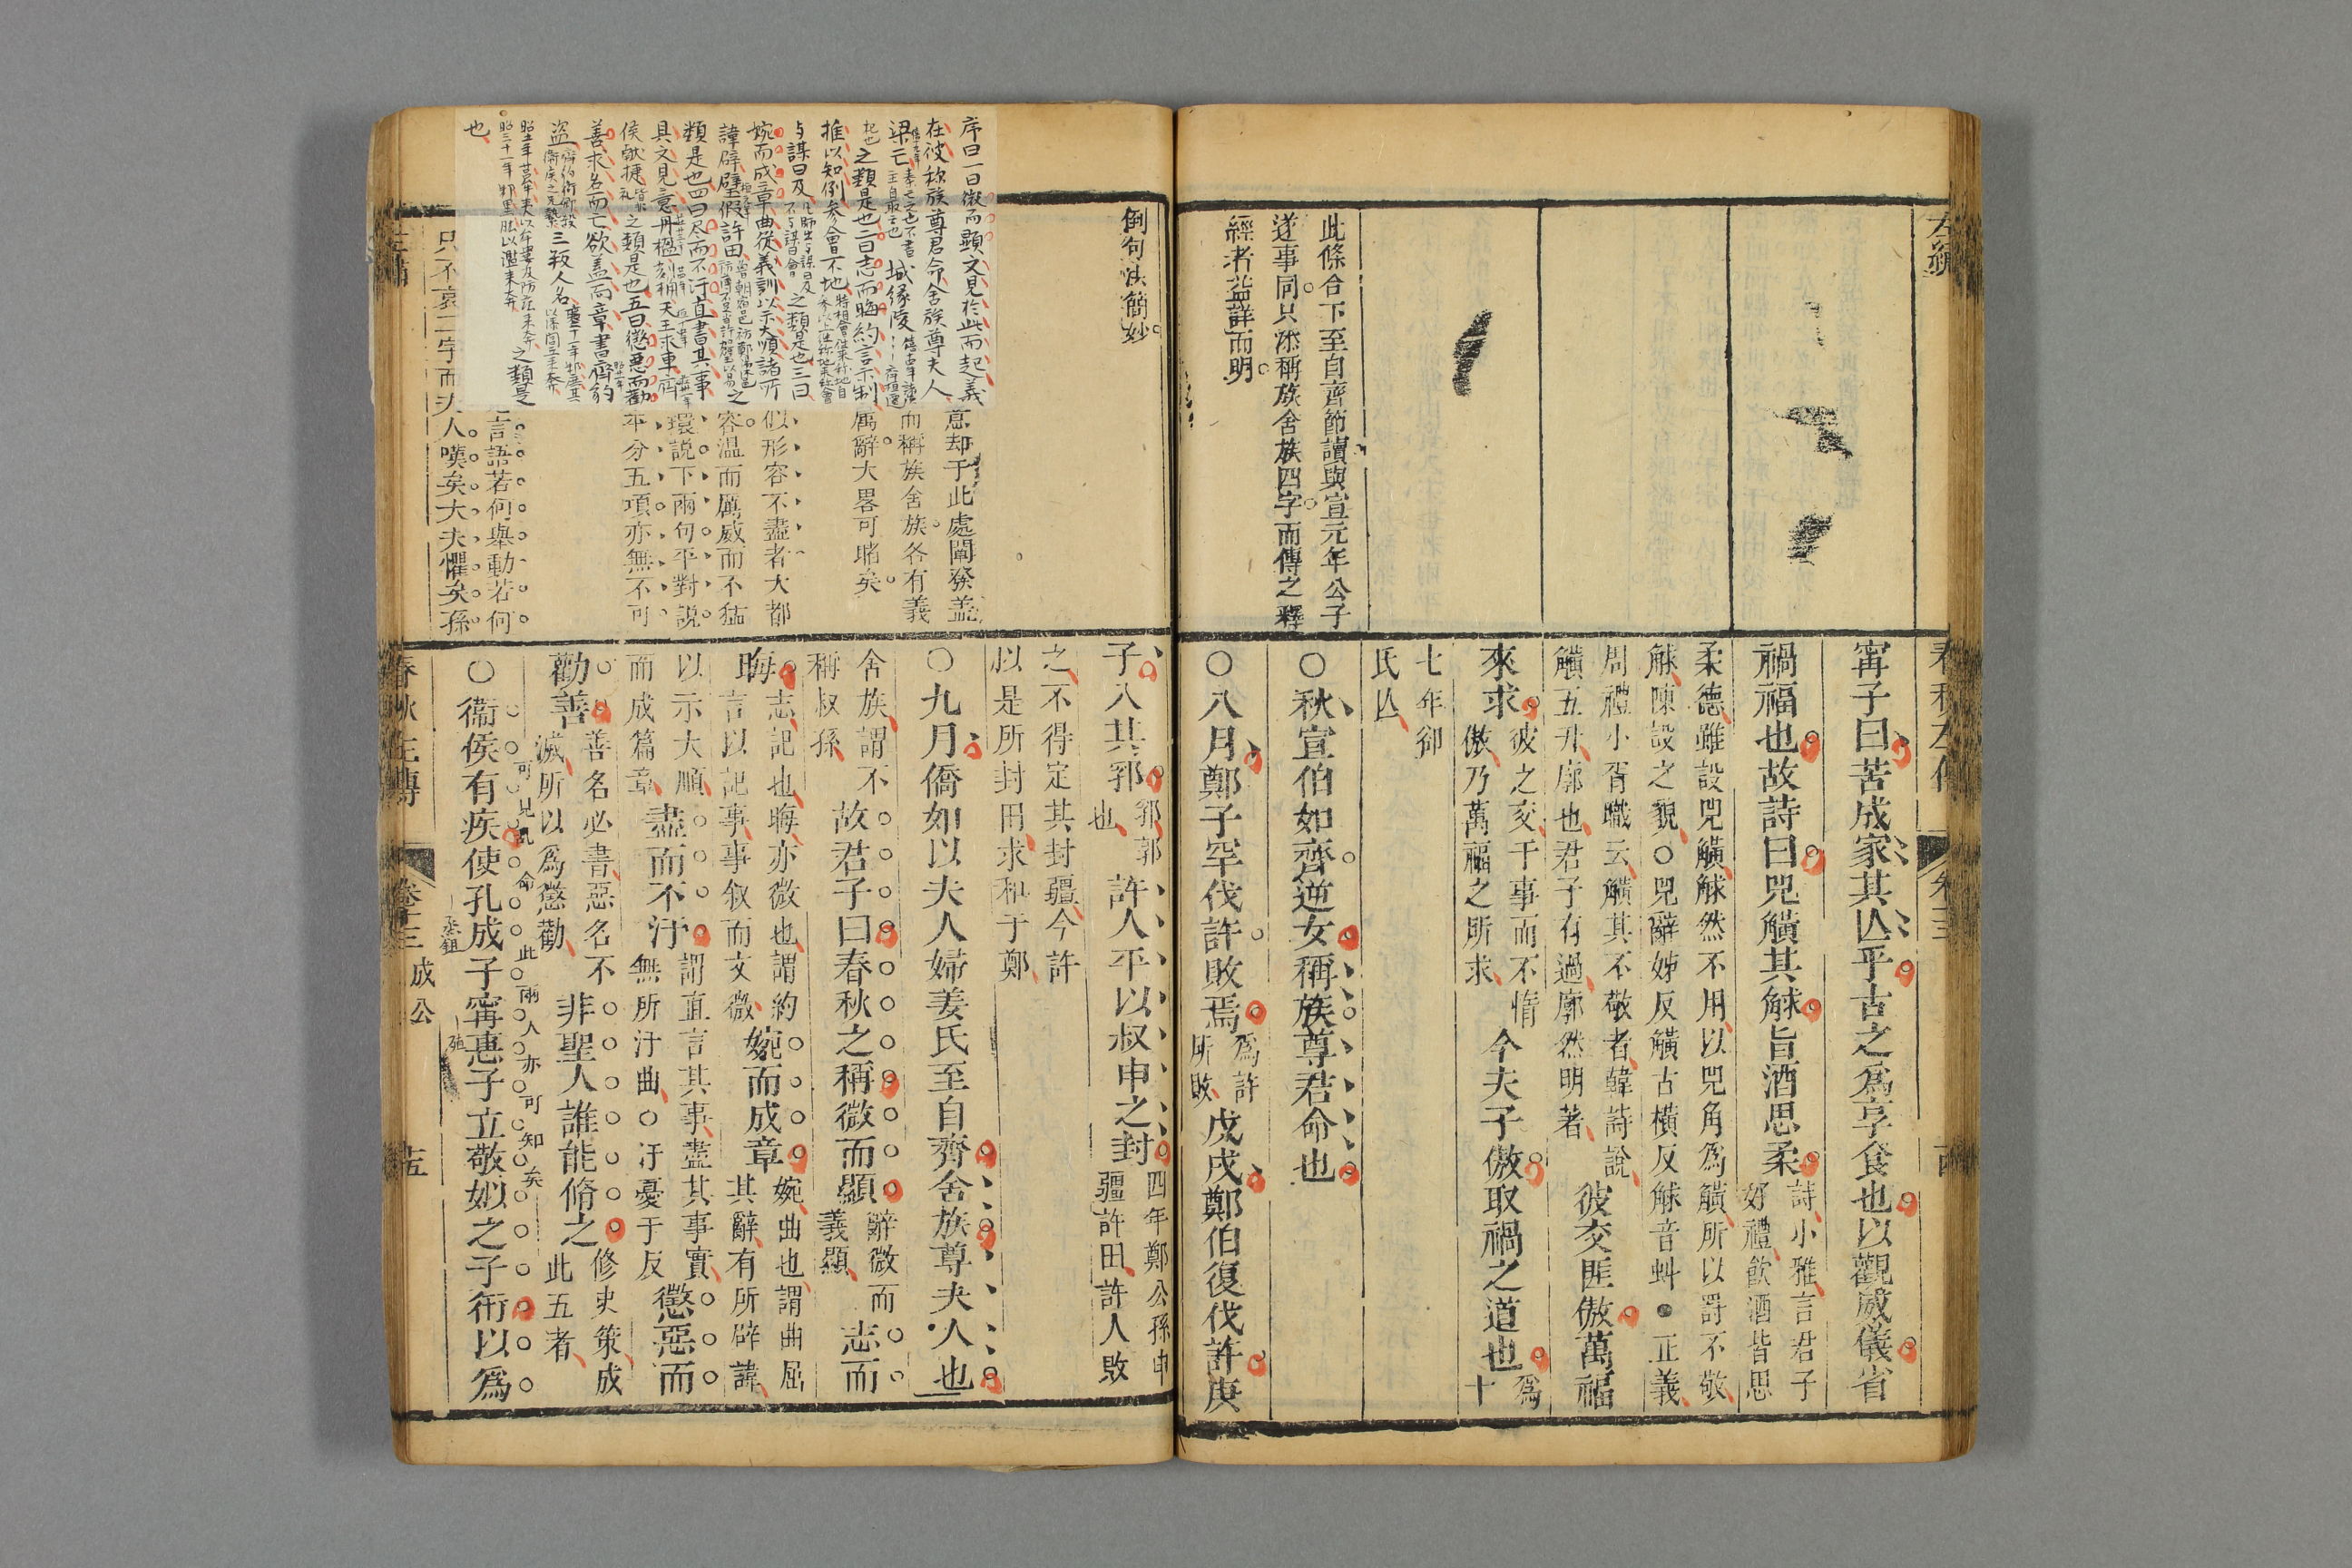 左繡
春秋左傳
甯子曰苦成家其亾乎古之爲享食也以觀威儀省
禍福也故詩曰兕觵其觩旨酒思柔詩小雅言君子好禮飲酒皆思
柔德雖設兕觵觩然不用以兕角爲觵所以罰不敬
觩陳設之貌○兕辭姊反觵古橫反觩音虯●正義
周禮小胥職云觵其不敬者韓詩說
觵五升廓也君子有過廓然明著
彼交匪傲萬福
來求彼之交于事而不惰傲乃萬福之所求今夫子傲取禍之道也爲十
七年卻
氏亾
○秋宣伯如齊逆女稱族尊君命也
○八月鄭子罕伐許敗焉爲許所敗戊戌鄭伯復伐許庚
此條合下至自齊節讀與宣元年公子
遂事同只添稱族舍族四字而傳之釋
經者益詳而明
子入其郛郛郭也許人平以叔申之封四年鄭公孫申疆許田許人敗
之不得定其封疆今許
以是所封田求和于鄭
○九月僑如以夫人婦姜氏至自齊舍族尊夫人也
舍族謂不稱叔孫故君子曰春秋之稱微而顯辭微而義顯志而
晦志記也晦亦微也謂約言以記事事叙而文微婉而成章婉曲也謂曲屈其辭有所辟諱
以示大順而成篇章盡而不汙謂直言其事盡其事實無所汙曲○汙憂于反懲惡而
勸善善名必書惡名不滅所以爲懲勸非聖人誰能脩之修史策成此五者
○衞侯有疾使孔成子甯惠子立敬姒之子衎以爲
可見亂命此兩人亦可知矣
倒句法簡妙
意却于此處闡發蓋
而稱族舍族各有義
属辭大畧可睹矣
似形容不盡者大都
容温而厲威而不猛
環説下兩句平對説
平分五項亦無不可
言語若何舉動若何
二字而夫人嘆矣大夫懼矣孫
序曰一曰微而顯文見於此而起義
在彼稱族尊君命舍族尊夫人
梁亡城緣陵
之類是也二曰志而晦約言示制
推以知例参會不地
与謀曰及之類是也三曰
婉而成章曲從義訓以示大順諸所
諱辟璧假許田之
類是也四曰尽而不汙直書其事
具文見意丹楹刻桷天王求車齊
侯献捷之類是也五曰懲悪而勸
善求名而亡欲盖而章書齊豹
盗三叛人名之類是
也
春秋左傳
卷十三
成公
十五